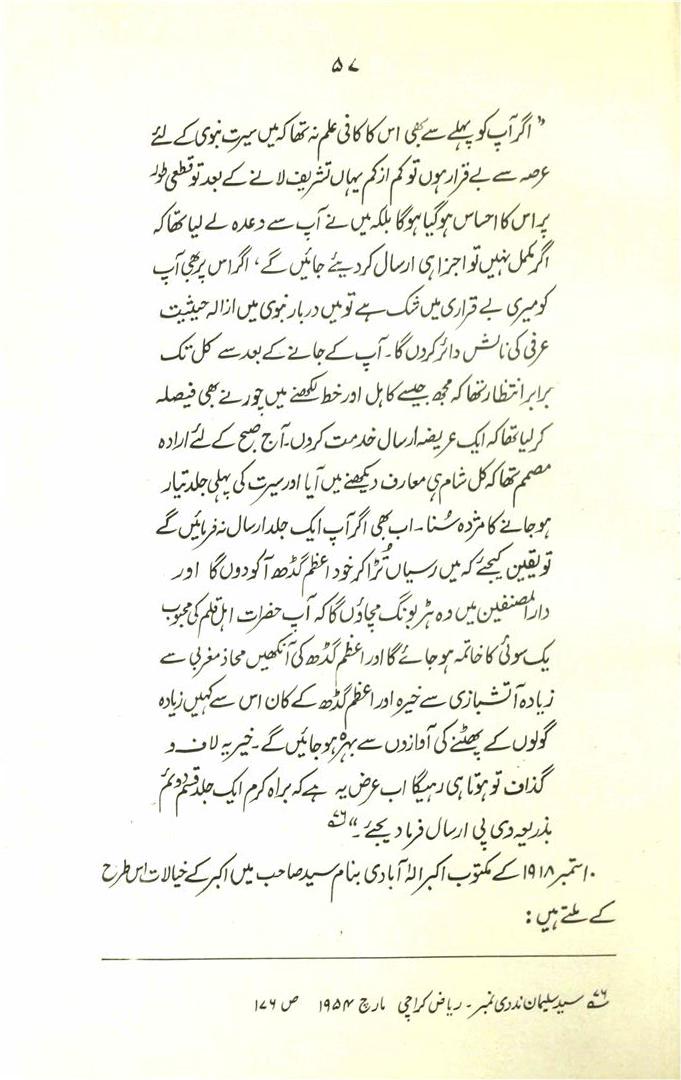 ۵۷
"اگر آپ کو پہلے سے بھی اس کا کافی علم نہ تھا کہ میں سیرت نبوی کے لئے
عرصہ سے بے قرار ہوں تو کم از کم یہاں تشریف لانے کے بعد تو قطعی طور
پر اس کا احساس ہو گیا ہو گا بلکہ میں نے آپ سے وعدہ لے لیا تھا کہ
اگر مکمل نہیں تو اجزا ہی ارسال کر دیئے جائیں گے، اگر اس پر بھی آپ
کو میری بے قراری میں شک ہے تو میں دربار نبوی میں ازالہ حیثیت
عرفی کی نالش دائر کر دوں گا۔ آپ کے جانے کے بعد سے کل تک
برابر انتظار تھا کہ مجھ جیسے کاہل اور خط لکھنے میں چور نے بھی فیصلہ
کر لیا تھا کہ ایک عریضہ ارسال خدمت کروں۔ آج صبح کے لئے ارادہ
مصمم تھا کہ کل شام ہی معارف دیکھنے میں آیا اور سیرت کی پہلی جلد تیار
ہو جانے کا مژدہ سُنا۔ اب بھی اگر آپ ایک جلد ارسال نہ فرمائیں گے
تو یقین کیجئے کہ میں رسیاں تُڑا کر خود اعظم گڈھ آ کودوں گا اور
دار المصنفین میں وہ ہڑبونگ مچاؤں گا کہ آپ حضرات اہل قلم کی محبوب
یک سوئی کا خاتمہ ہو جائے گا اور اعظم گڈھ کی آنکھیں محاذ مغربی سے
زیادہ آتشبازی سے خیرہ اور اعظم گڈھ کے کان اس سے کہیں زیادہ
گولوں کے پھٹنے کی آوازوں سے بہرہ ہو جائیں گے۔ خیر یہ لاف و
گذاف تو ہوتا ہی رہیگا اب عرض یہ ہے کہ براہ کرم ایک جلد قسم دوئم
بذریعہ وی پی ارسال فرما دیجئے۔" ۷۶؎
۱۰ ستمبر ۱۹۱۸ کے مکتوب اکبر الہٰ آبادی بنام سید صاحب میں اکبر کے خیالات اس طرح
کے ملتے ہیں:
۷۶؎ سید سلیمان ندوی نمبر۔ ریاض کراچی مارچ ۱۹۵۴ ص ۱۷۶